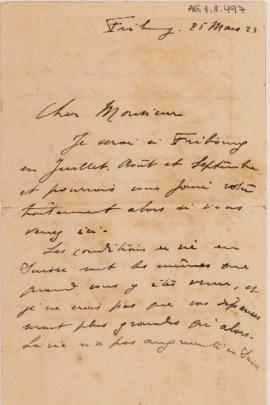 AG 1.1.497
Fribourg. 25 Mars 23
Cher Monsieur
Je serai à Fribourg
en Juillet, Août et Septembre
et pourrais vous faire votre
traitement alors si vous
venez ici.
Les conditions de vie en
Suisse sont les mêmes que
quand vous y étiez venu, et
je ne crois pas que vos dépenses
seront plus grandes qu'alors.
La vie n'a pas augmenté en Suisse